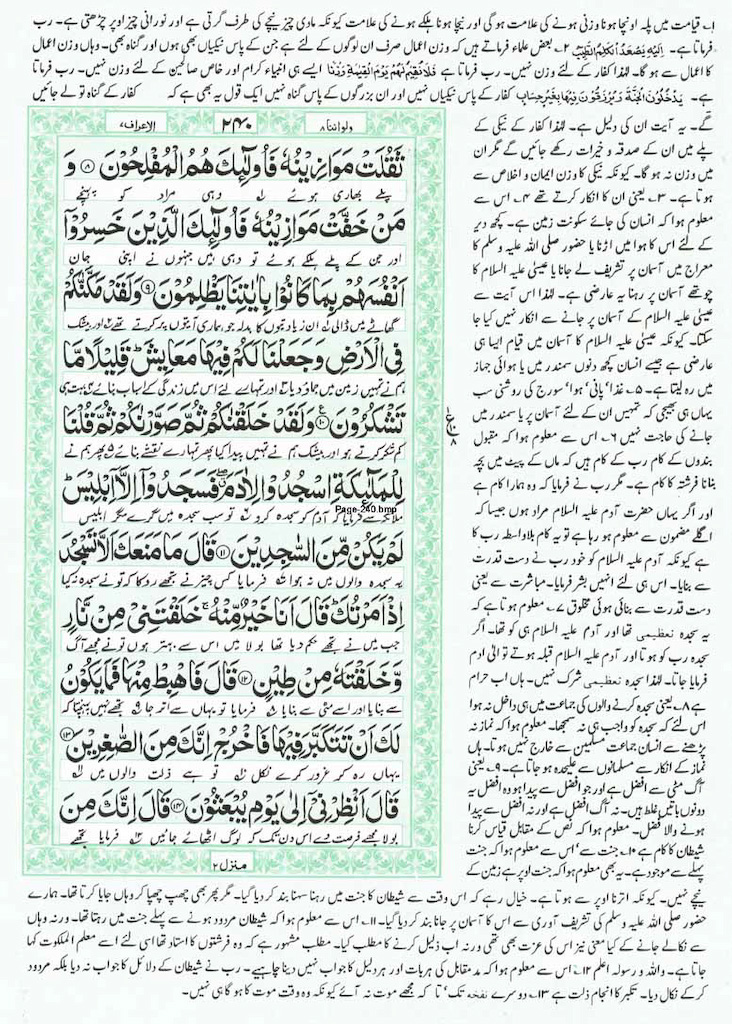 ۱۔ قیامت میں پلہ اونچا ہونا وزنی ہونے کی علامت ہوگی اور نیچا ہونا ہلکے ہونے کی علامت کیونکہ مادی چیز نیچے کی طرف گرتی ہے اور نورانی چیز اوپر چڑھتی ہے۔ رب
فرماتا ہے۔ اِلَیْہِ یَصْعَدُ الْکَلِمُ الطَّیِّبُ ۲۔ بعض علماء فرماتے ہیں کہ وزن اعمال صرف ان لوگوں کے لئے ہے جن کے پاس نیکیاں بھی ہوں اور گناہ بھی۔ وہاں وزن اعمال
کا اعمال سے ہو گا۔ لہٰذا کفار کے لئے وزن نہیں۔ رب فرماتا ہے فَلَا نُقِیْمُ لَہُمْ یَوْمَ الْقِیٰمَۃِ وَزْنًا ایسے ہی انبیاء کرام اور خاص صالحین کے لئے وزن نہیں۔ رب فرماتا
ہے۔ یَدْخُلُوْنَ الْجَنَّۃَ وَ یُرْزَقُوْنَ فِیْہَا بِغَیْرِ حِسَابٍ کفار کے پاس نیکیاں نہیں اور ان بزرگوں کے پاس گناہ نہیں ایک قول یہ بھی ہے کہ کفار کے گناہ تو لے جائیں
ولواننا ۸
۲۴۰
الاعراف ۷
ثَقُلَتْ مَوَازِیْنُہٗ فَاُولٰٓئِکَ ہُمُ الْمُفْلِحُوْنَ ﴿۸﴾ وَ
پلے بھاری ہوئے وہی مراد کو پہنچے
مَنْ خَفَّتْ مَوَازِیْنُہٗ فَاُولٰٓئِکَ الَّذِیْنَ خَسِرُوْٓا
اور جن کے پلے ہلکے ہوئے تو وہی ہیں جنہوں نے اپنی جان
اَنْفُسَہُمْ بِمَا کَانُوْا بِاٰیٰتِنَا یَظْلِمُوْنَ ﴿۹﴾ وَلَقَدْ مَکَّنّٰکُمْ
گھاٹے میں ڈالی ان زیادتیوں کا بدلہ جو ہماری آیتوں پر کرتے تھے اور بیشک
فِی الْاَرْضِ وَجَعَلْنَا لَکُمْ فِیْہَا مَعَایِشَ قَلِیْلًا مَّا
ہم نے تمہیں زمین میں جماؤ دیا اور تمہارے لئے اس میں زندگی کے اسباب بنائے بہت ہی
تَشْکُرُوْنَ ﴿۱۰﴾ وَلَقَدْ خَلَقْنٰکُمْ ثُمَّ صَوَّرْنٰکُمْ ثُمَّ قُلْنَا
کم شکر کرتے ہو اور بیشک ہم نے تمہیں پیدا کیا پھر تمہارے نقشے بنائے پھر ہم نے
لِلْمَلٰٓئِکَۃِ اسْجُدُوْا لِاٰدَمَ فَسَجَدُوْٓا اِلَّآ اِبْلِیْسَ
ملائکہ سے فرمایا کہ آدم کو سجدہ کرو تو سب سجدہ میں گرے مگر ابلیس
Page-240.bmp
لَمْ یَکُنْ مِّنَ السّٰجِدِیْنَ ﴿۱۱﴾ قَالَ مَا مَنَعَکَ اَلَّا تَسْجُدَ
یہ سجدہ والوں میں نہ ہوا فرمایا کس چیز نے تجھے روکا کہ تو نے سجدہ نہ کیا
اِذْ اَمَرْتُکَ قَالَ اَنَا خَیْرٌ مِّنْہُ خَلَقْتَنِیْ مِنْ نَّارٍ
جب میں نے تجھے حکم دیا تھا بولا میں اس سے بہتر ہوں تو نے مجھے آگ
وَّخَلَقْتَہٗ مِنْ طِیْنٍ ﴿۱۲﴾ قَالَ فَاہْبِطْ مِنْہَا فَمَا یَکُوْنُ
سے بنایا اور اسے مٹی سے بنایا فرمایا تو یہاں سے اتر جا تجھے نہیں پہنچتا کہ
لَکَ اَنْ تَتَکَبَّرَ فِیْہَا فَاخْرُجْ اِنَّکَ مِنَ الصّٰغِرِیْنَ ﴿۱۳﴾
یہاں رہ کر غرور کرے نکل تو ہے ذلت والوں میں
قَالَ اَنْظِرْنِیْٓ اِلٰی یَوْمِ یُبْعَثُوْنَ ﴿۱۴﴾ قَالَ اِنَّکَ مِنَ
بولا مجھے فرصت دے اس دن تک کہ لوگ اٹھائے جائیں فرمایا تجھے
منزل ۲
گے۔ یہ آیت ان کی دلیل ہے۔ لہٰذا کفار کے نیکی کے
پلے میں ان کے صدقہ و خیرات رکھے جائیں گے مگر ان
میں وزن نہ ہو گا۔ کیونکہ نیکی کا وزن ایمان و اخلاص سے
ہوتا ہے۔ ۳۔ یعنی ان کا انکار کرتے تھے ۴۔ اس سے
معلوم ہوا کہ انسان کی جائے سکونت زمین ہے۔ کچھ دیر
کے لئے اس کا ہوا میں اڑنا یا حضور صلی اللہ علیہ وسلم کا
معراج میں آسمان پر تشریف لے جانا یا عیسیٰ علیہ السلام کا
چوتھے آسمان پر رہنا یہ عارضی ہے۔ لہٰذا اس آیت سے
عیسیٰ علیہ السلام کے آسمان پر جانے سے انکار نہیں کیا جا
سکتا۔ کیونکہ عیسیٰ علیہ السلام کا آسمان میں قیام ایسا ہی
عارضی ہے جیسے انسان کچھ دنوں سمندر میں یا ہوائی جہاز
میں رہ لیتا ہے۔ ۵۔ غذا' پانی' ہوا' سورج کی روشنی سب
یہاں ہی بھیجی کہ تمہیں ان کے لئے آسمان پر یا سمندر میں
جانے کی حاجت نہیں ۶۔ اس سے معلوم ہوا کہ مقبول
بندوں کے کام رب کے کام ہیں کہ ماں کے پیٹ میں بچہ
بنانا فرشتہ کا کام ہے۔ مگر رب نے فرمایا کہ وہ ہمارا کام ہے
اور اگر یہاں حضرت آدم علیہ السلام مراد ہوں جیسا کہ
اگلے مضمون سے معلوم ہو رہا ہے تو یہ کام بلاواسطہ رب کا
ہے کیونکہ آدم علیہ السلام کو خود رب نے دست قدرت
سے بنایا۔ اس ہی لئے انہیں بشر فرمایا۔ مباشرت سے یعنی
دست قدرت سے بنائی ہوئی مخلوق ۷۔ معلوم ہوتا ہے کہ
یہ سجدہ تعظیمی تھا اور آدم علیہ السلام ہی کو تھا۔ اگر
سجدہ رب کو ہوتا اور آدم علیہ السلام قبلہ ہوتے تو الی ادم
فرمایا جاتا۔ لہٰذا سجدہ تعظیمی شرک نہیں۔ ہاں اب حرام
ہے ۸۔ یعنی سجدہ کرنے والوں کی جماعت میں ہی داخل نہ ہوا
اس لئے کہ سجدہ کو واجب ہی نہ سمجھا۔ معلوم ہوا کہ نماز نہ
پڑھنے سے انسان جماعت مسلمین سے خارج نہیں ہوتا۔ ہاں
نماز کے انکار سے مسلمانوں سے علیحدہ ہو جاتا ہے۔ ۹۔ یعنی
آگ مٹی سے افضل ہے اور جو افضل سے پیدا ہو وہ افضل یہ
دونوں باتیں غلط ہیں۔ نہ آگ افضل ہے اور نہ افضل سے پیدا
ہونے والا افضل۔ معلوم ہوا کہ نص کے مقابل قیاس کرنا
شیطان کا کام ہے ۱۰۔ جنت سے' اس سے معلوم ہوا کہ جنت
پہلے سے موجود ہے۔ یہ بھی معلوم ہوا کہ جنت اوپر ہے زمین کے
نیچے نہیں۔ کیونکہ اترنا اوپر سے ہوتا ہے۔ خیال رہے کہ اس وقت سے شیطان کا جنت میں رہنا سہنا بند کر دیا گیا۔ مگر پھر بھی چھپ چھپا کر وہاں جایا کرتا تھا۔ ہمارے
حضور صلی اللہ علیہ وسلم کی تشریف آوری سے اس کا آسمان پر جانا بند کر دیا گیا۔ ۱۱۔ اس سے معلوم ہوا کہ شیطان مردود ہونے سے پہلے جنت میں رہتا تھا۔ ورنہ وہاں
سے نکالے جانے کے کیا معنی نیز اس کی عزت بھی تھی ورنہ اب ذلیل کرنے کا مطلب کیا۔ مطلب مشہور ہے کہ وہ فرشتوں کا استاد تھا اسی لئے اسے معلم الملکوت کہا
جاتا ہے۔ واللہ و رسولہ اعلم ۱۲۔ اس سے معلوم ہوا کہ مد مقابل کی ہر بات اور ہر دلیل کا جواب نہیں دینا چاہیے۔ رب نے شیطان کے دلائل کا جواب نہ دیا بلکہ مردود
کر کے نکال دیا۔ تکبر کا انجام ذلت ہے ۱۳۔ دوسرے نفخہ تک' تا کہ مجھے موت نہ آئے کیونکہ وہ وقت موت کا ہو گا ہی نہیں۔